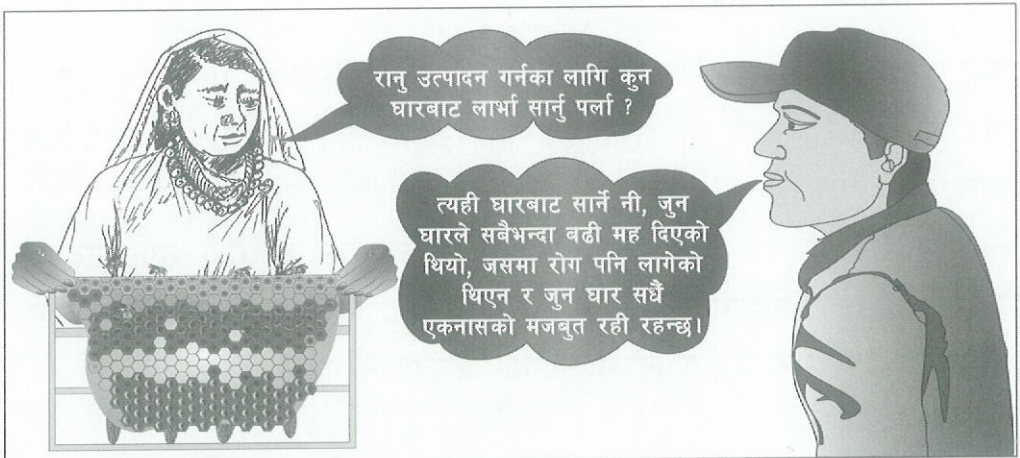 रानु उत्पादन गर्नका लागि कुन
घारबाट लार्भा सार्नु पर्ला ?
त्यही घारबाट सार्ने नी, जुन
घारले सबैभन्दा बढी मह दिएको
थियो, जसमा रोग पनि लागेको
थिएन र जुन घार सधैं
एकनासको मजबुत रही रहन्छ।